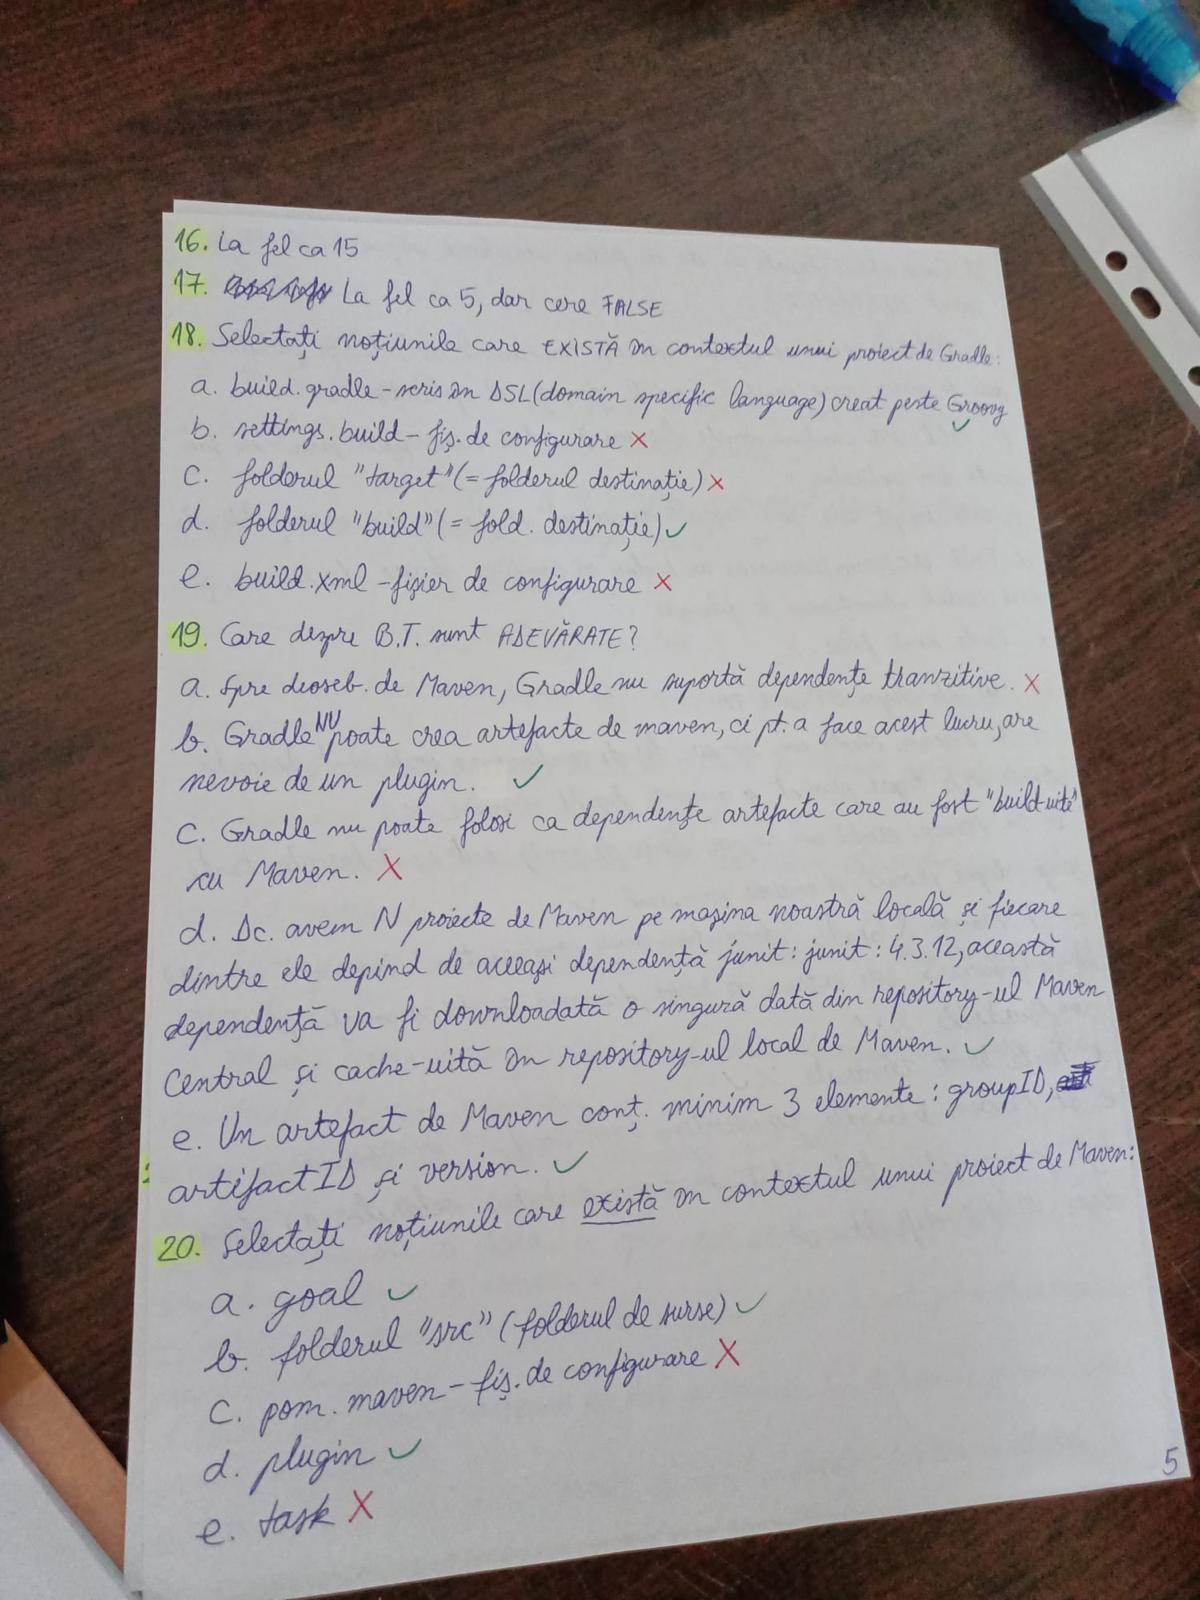 16. La fel ca 15
17. La fel ca 5, dar cere FALSE
18. Selectați noțiunile care EXISTĂ în contextul unui proiect de Gradle:
a. build.gradle - scris în DSL (domain specific language) creat peste Groovy ✓
b. settings.build - fiș. de configurare ×
c. folderul "target" (= folderul destinație) ×
d. folderul "build" (= fold. destinație) ✓
e. build.xml - fișier de configurare ×
19. Care despre B.T. sunt ADEVĂRATE?
a. Spre deoseb. de Maven, Gradle nu suportă dependențe tranzitive. ×
b. Gradle NU poate crea artefacte de maven, ci pt. a face acest lucru, are
nevoie de un plugin. ✓
c. Gradle nu poate folosi ca dependențe artefacte care au fost "build-uite"
cu Maven. X
d. Dc. avem N proiecte de Maven pe mașina noastră locală și fiecare
dintre ele depind de aceeași dependență junit : junit : 4.3.12, această
dependență va fi downloadată o singură dată din repository-ul Maven
Central și cache-uită în repository-ul local de Maven. ✓
e. Un artefact de Maven conț. minim 3 elemente : groupID,
artifactID și version. ✓
20. Selectați noțiunile care există în contextul unui proiect de Maven:
a. goal ✓
b. folderul "src" (folderul de surse) ✓
c. pom.maven - fiș. de configurare X
d. plugin ✓
e. task X
5